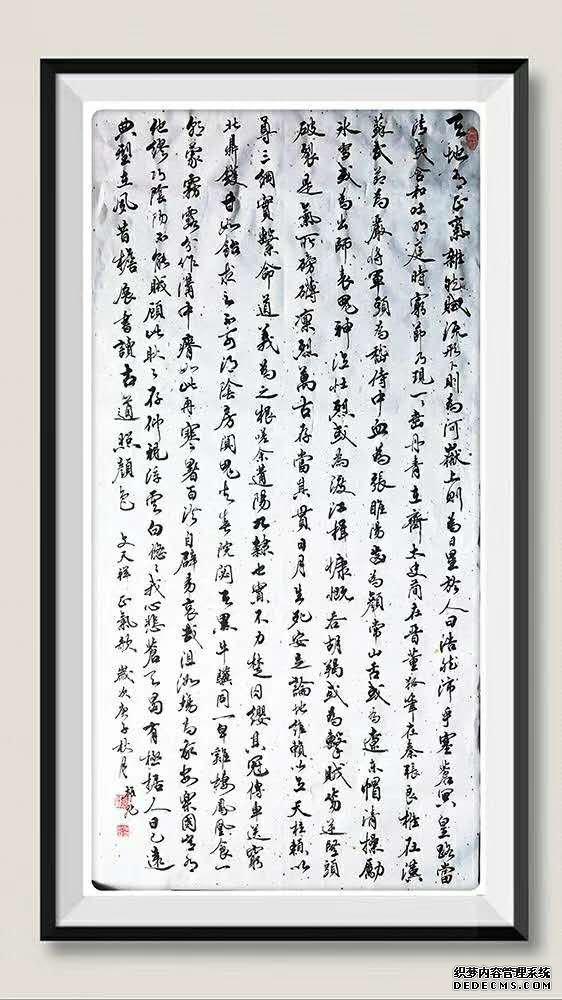 天地有正氣雜然賦流形下則為河嶽上則為日星於人曰浩然沛乎塞蒼冥皇路當
清夷含和吐明庭時窮節乃現一々垂丹青在齊太史簡在晉董狐筆在秦張良椎在漢
蘇武節為嚴將軍頭為嵇侍中血為張睢陽齒為顏常山舌或為遼東帽清操勵
冰雪或為出師表鬼神泣壯烈或為渡江楫慷慨吞胡羯或為擊賊笏逆豎頭
破裂是氣所磅礴凜烈萬古存當其貫日月生死安足論地維賴以立天柱賴以
尊三綱實繫命道義為之根嗟余遘陽九隸也實不力楚囚纓其冠傳車送窮
北鼎鑊甘如飴求之不可得陰房闃鬼火春院閟天黑牛驥同一皁雞棲鳳凰食一
朝蒙霧露分作溝中瘠如此再寒暑百沴自辟易哀哉沮洳場為我安樂國豈有
他繆巧陰陽不能賊顧此耿々存仰視浮雲白悠々我心悲蒼天曷有極哲人日已遠
典型在風昔檐展書讀古道照顏色 文天祥正氣歌 歲次庚子秋月
织梦内容管理系统
DEDECMS.COM